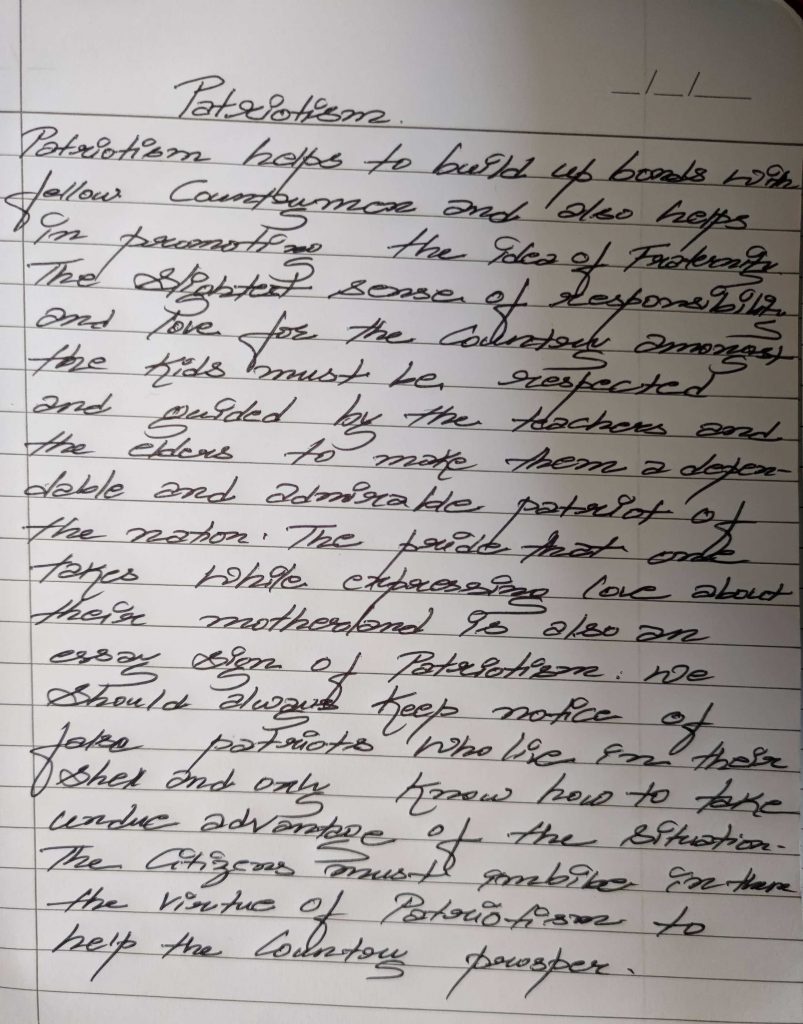 __/__/__
Patriotism.
Patriotism helps to build up bonds with
fellow Countrymen and also helps
in promoting the idea of Fraternity
The slightest sense of responsibility
and love for the Country amongst
the kids must be respected
and guided by the teachers and
the elders to make them a depen-
dable and admirable patriot of
the nation. The pride that one
takes while expressing love about
their motherland is also an
essay sign of Patriotism. We
should always keep notice of
fake patriots who live in their
shell and only know how to take
undue advantage of the situation.
The Citizens must imbibe in them
the virtue of Patriotism to
help the Country prosper.